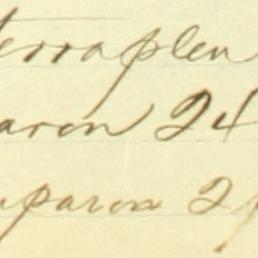 terraplen
aron 24
uparon 2